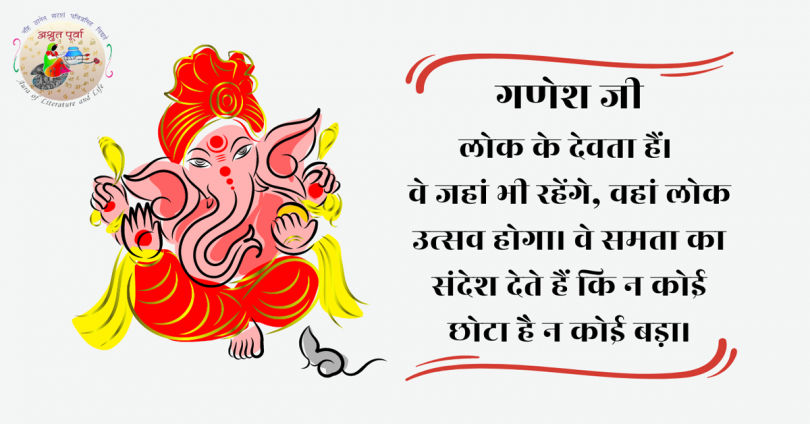 अश्रुत पूर्वा
Aura of Literature and Life
गणेश जी
लोक के देवता हैं।
वे जहां भी रहेंगे, वहां लोक
उत्सव होगा। वे समता का
संदेश देते हैं कि न कोई
छोटा है न कोई बड़ा।